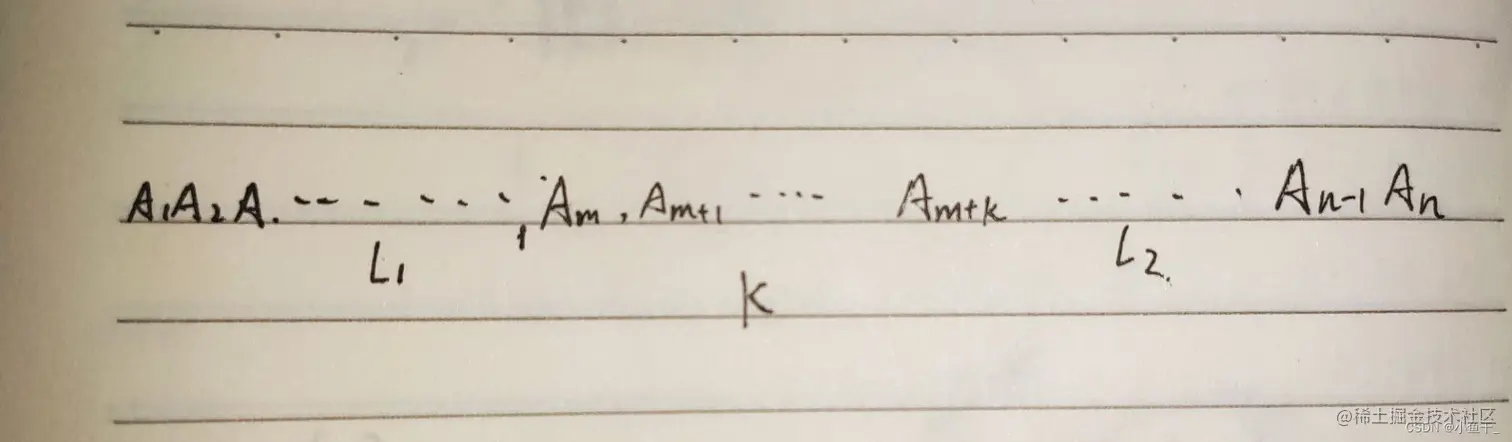 A₁A₂A. -- - - - - , Am , Am+1 ---- Am+k --- - . An-1 An
L₁ L₂.
K
@稀土掘金技术社区
CSDN @小鱼干_